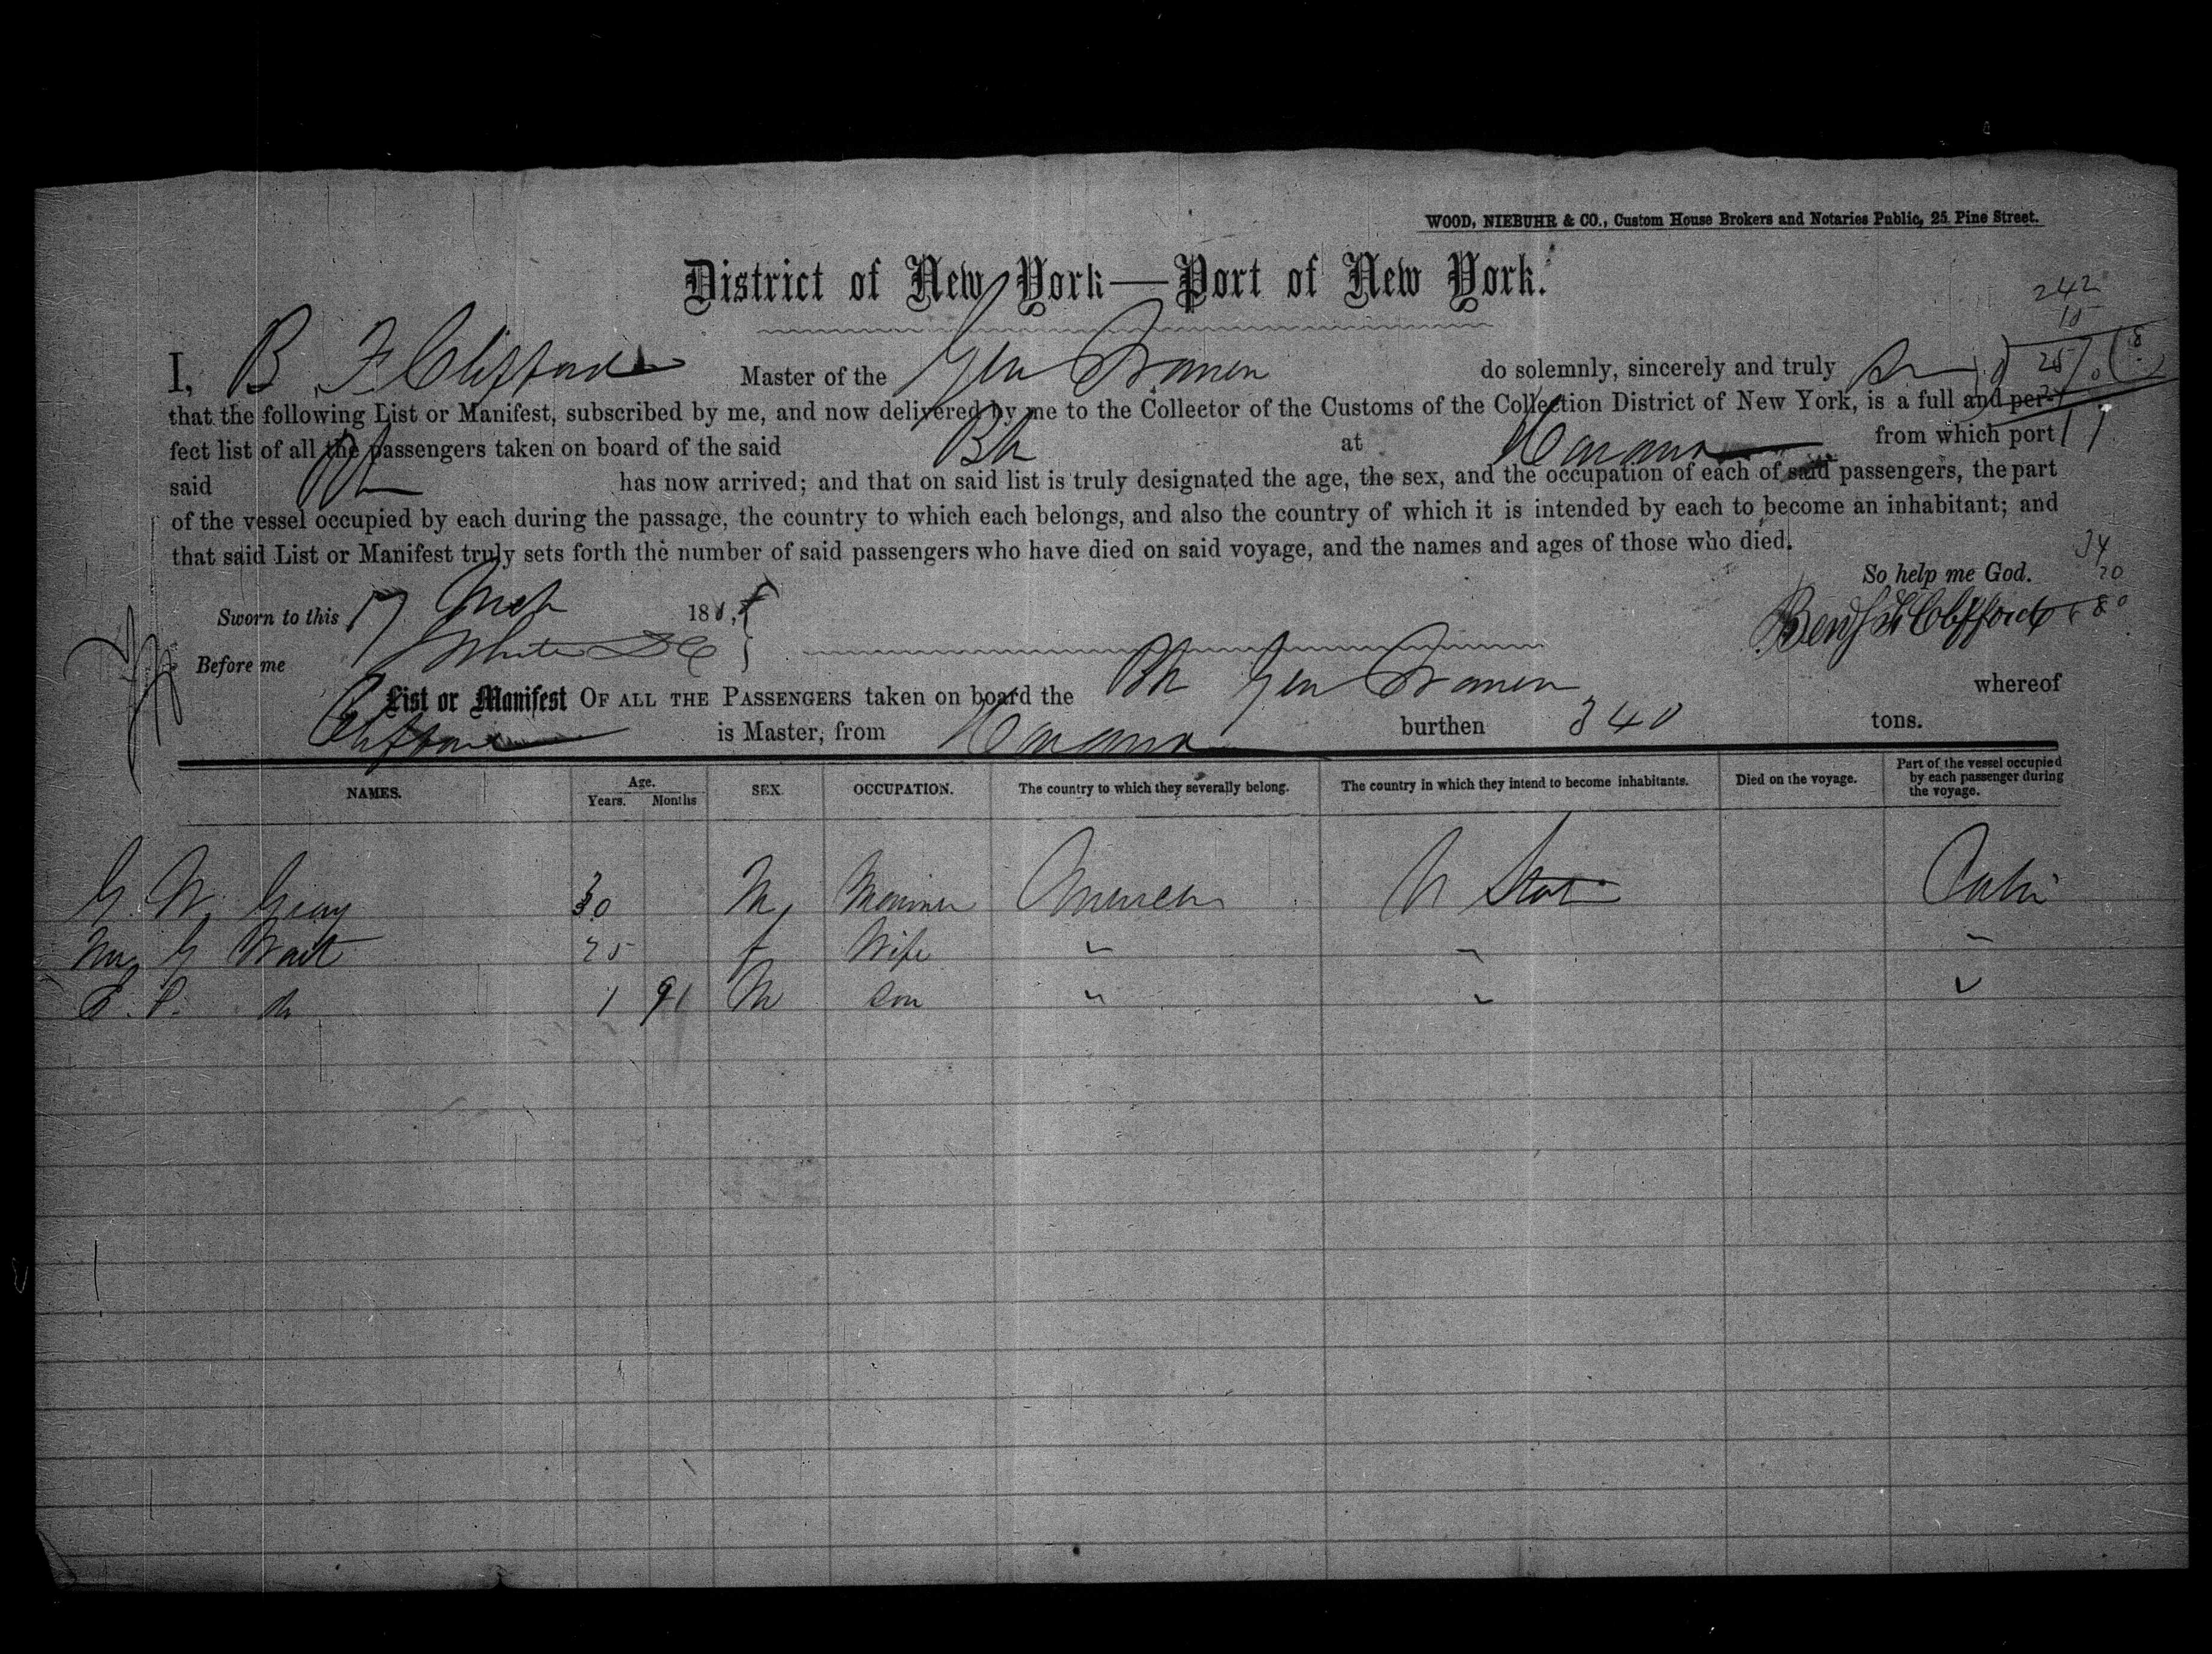 WOOD, NIEBUHR & CO., Custom House Brokers and Notaries Public, 25 Pine Street.
District of New York—Port of New York.
242
I, B. F. Clifford Master of the Gen do solemnly, sincerely and truly
that the following List or Manifest, subscribed by me, and now delivered by me to the Collector of the Customs of the Collection District of New York, is a full and per-
fect list of all the passengers taken on board of the said Bk at Havana from which port
said Bk has now arrived; and that on said list is truly designated the age, the sex, and the occupation of each of said passengers, the part
of the vessel occupied by each during the passage, the country to which each belongs, and also the country of which it is intended by each to become an inhabitant; and
that said List or Manifest truly sets forth the number of said passengers who have died on said voyage, and the names and ages of those who died.
So help me God.
Sworn to this 17 Mch 18 Benj F Clifford
Before me White
List or Manifest OF ALL THE PASSENGERS taken on board the Bk Gen whereof
Clifford is Master, from Havana burthen 340 tons.
NAMES. Age. Years. Months SEX. OCCUPATION. The country to which they severally belong. The country in which they intend to become inhabitants. Died on the voyage. Part of the vessel occupied by each passenger during the voyage.
G. W. Gray 30 M Mariner America U State Cabin
G Wait 25 f Wife " " "
1 9 M son " " "